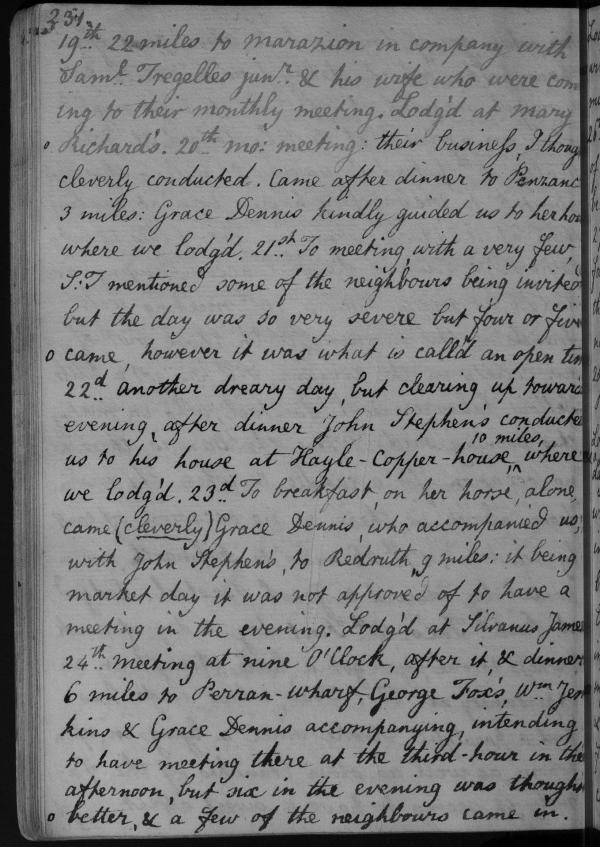 231.
19th 22 miles to marazion in company with
Saml. Tregelles junr. & his wife who were com
ing to their monthly meeting. Lodg'd at mary
o Richard's. 20th mo: meeting: their business, I thoug
cleverly conducted. Came after dinner to Penzanc
3 miles: Grace Dennis kindly guided us to her hou
where we lodg'd. 21st To meeting with a very few,
S:T mentioned some of the neighbours being invited
but the day was so very severe but four or five
o came, however it was what is call'd an open tim
22d another dreary day, but clearing up towards
evening, after dinner John Stephen's conducte
10 miles,
us to his house at Hayle-Copper-house, ^ where
we lodg'd. 23d To breakfast, on her horse, alone,
came (cleverly) Grace Dennis, who accompanied us,
with John Stephen's, to Redruth, 9 miles: it being
market day it was not approved of to have a
meeting in the evening. Lodg'd at Silvanus James
24th meeting at nine O'Clock, after it, & dinner
6 miles to Perran-wharf, George Fox's, Wm Jen
kins & Grace Dennis accompanying, intending
to have meeting there at the third-hour in the
afternoon, but six in the evening was though
o better, & a few of the neighbours came in.